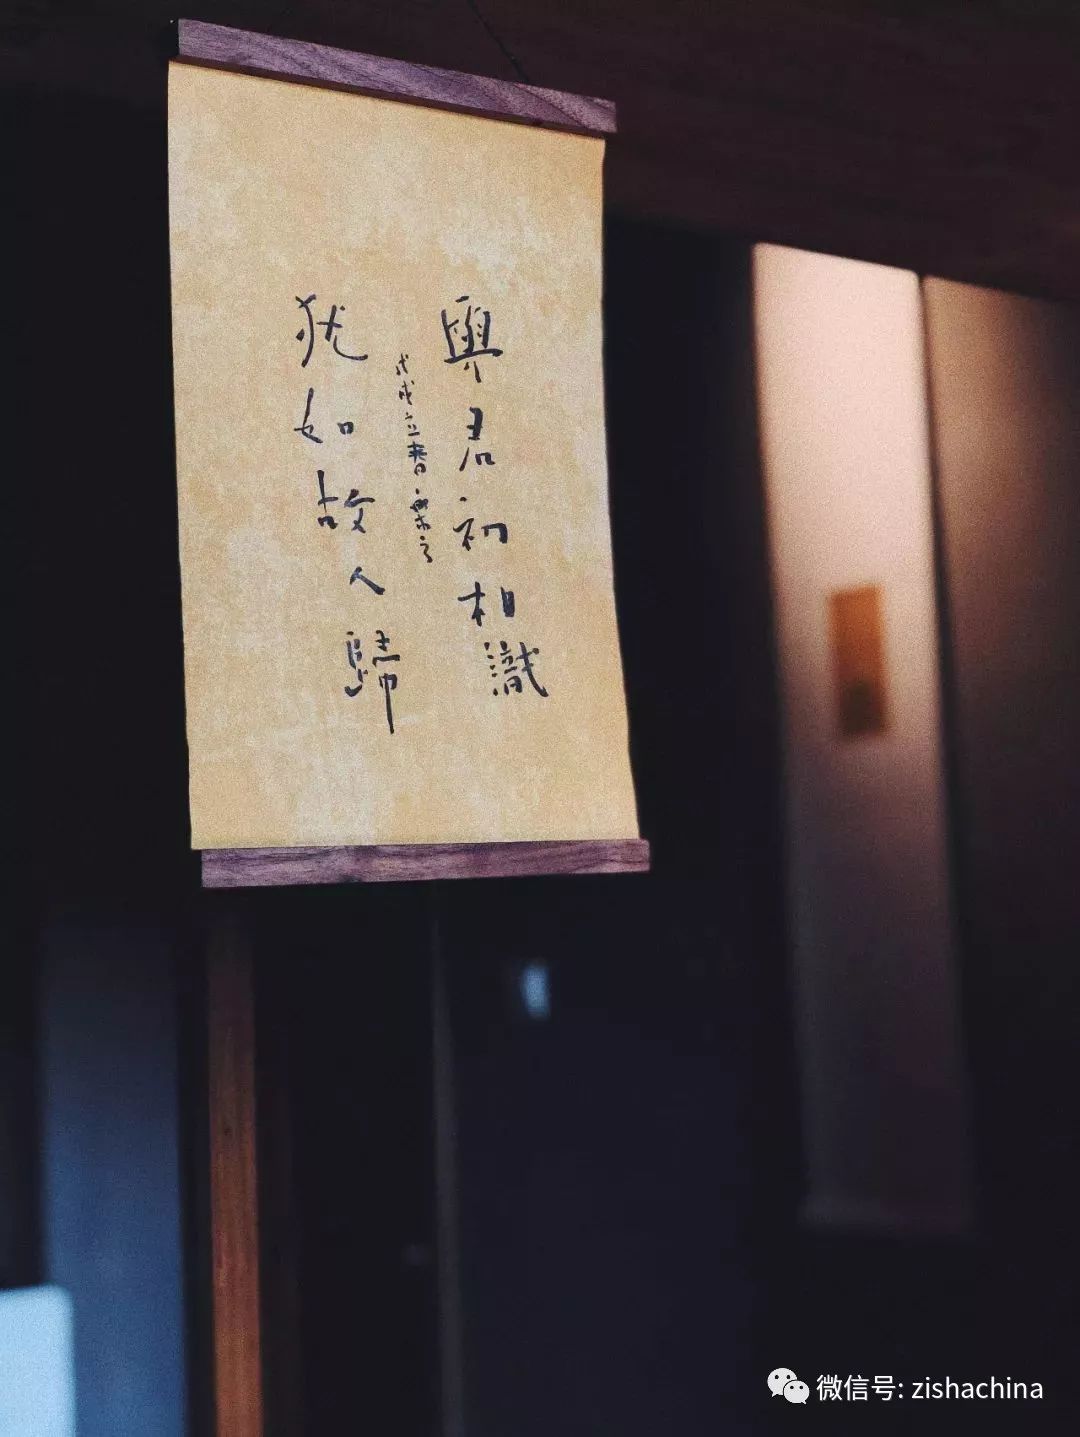 與君初相識
猶如故人歸
戊戌立春
微信号: zishachina